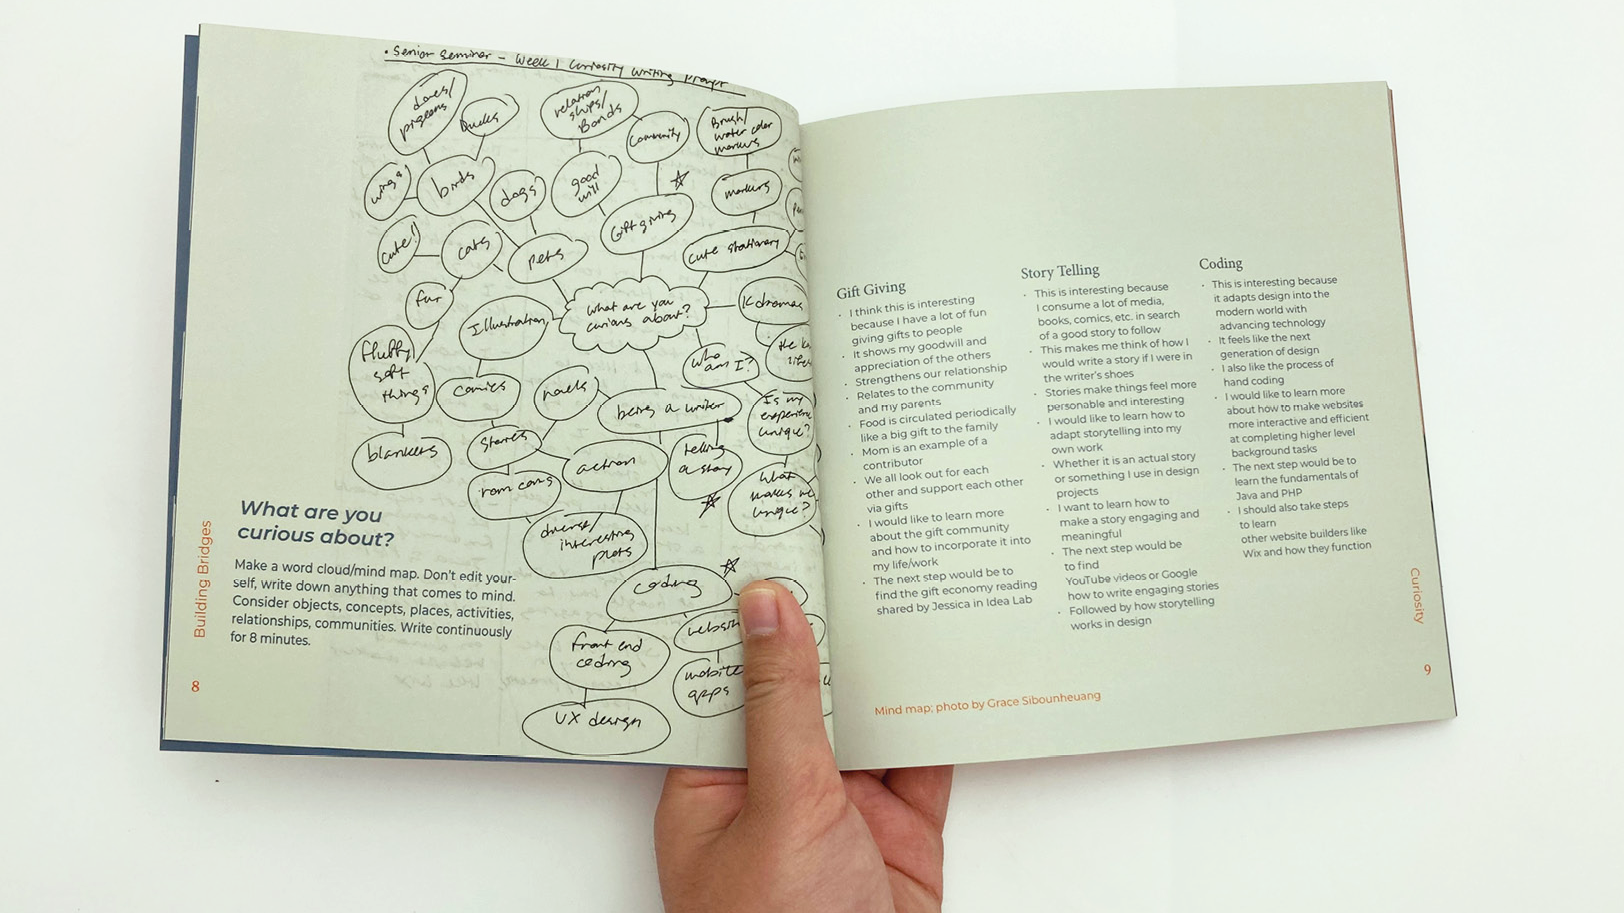 • Senior Seminar - Week 1 Curiosity Writing Prompt
doves/
pigeons
Ducks
relation
ships/
Bonds
Community
Brush/
water color
markers
wings
birds
dogs
good
will
markers
cute!
cats
pets
Gift giving
cute stationary
fur
Illustration
What are you
curious about?
Kdramas
fluffy
soft
things
comics
being a writer
who
am I?
Is my
experience
unique?
blankets
stories
action
telling
a story
What
makes me
unique?
rom coms
diverse/
interesting
plots
coding
front end
coding
mobile
apps
UX design
What are you
curious about?
Make a word cloud/mind map. Don't edit your-
self, write down anything that comes to mind.
Consider objects, concepts, places, activities,
relationships, communities. Write continuously
for 8 minutes.
Building Bridges
8
Gift Giving
• I think this is interesting
because I have a lot of fun
giving gifts to people
• It shows my goodwill and
appreciation of the others
• Strengthens our relationship
• Relates to the community
and my parents
• Food is circulated periodically
like a big gift to the family
• Mom is an example of a
contributor
• We all look out for each
other and support each other
via gifts
• I would like to learn more
about the gift community
and how to incorporate it into
my life/work
• The next step would be to
find the gift economy reading
shared by Jessica in Idea Lab
Story Telling
• This is interesting because
I consume a lot of media,
books, comics, etc. in search
of a good story to follow
• This makes me think of how I
would write a story if I were in
the writer's shoes
• Stories make things feel more
personable and interesting
• I would like to learn how to
adapt storytelling into my
own work
• Whether it is an actual story
or something I use in design
projects
• I want to learn how to
make a story engaging and
meaningful
• The next step would be
to find
YouTube videos or Google
how to write engaging stories
• Followed by how storytelling
works in design
Coding
• This is interesting because
it adapts design into the
modern world with
advancing technology
• It feels like the next
generation of design
• I also like the process of
hand coding
• I would like to learn more
about how to make websites
more interactive and efficient
at completing higher level
background tasks
• The next step would be to
learn the fundamentals of
Java and PHP
• I should also take steps
to learn
other website builders like
Wix and how they function
Mind map; photo by Grace Sibounheuang
Curiosity
9